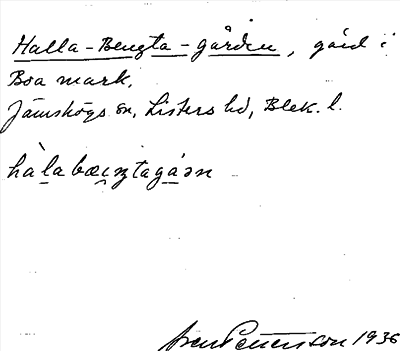 Halla-Bengta-gården, gård i
Boa mark,
Jämshögs sn, Listers hd, Blek. l.
hàlabæiŋtagáən
Sven Petterson 1936